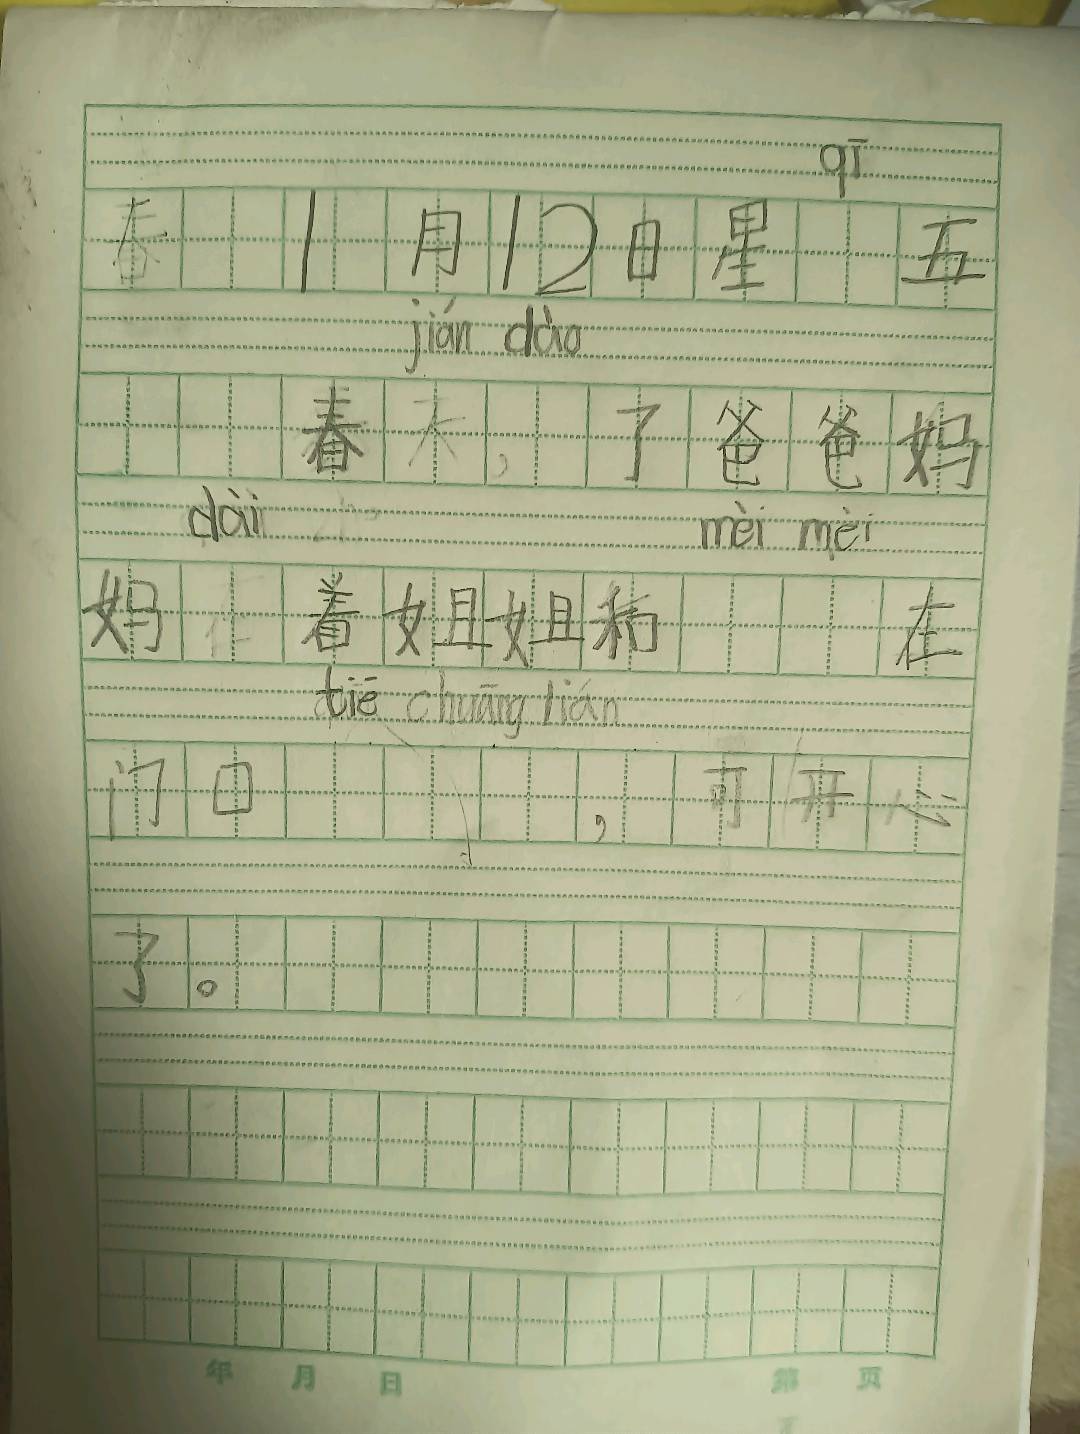 qī
春 1月12日星 五
jián dào
春天, 了爸爸妈
dàii mèi mèi
妈 着姐姐和 在
tiē chuāng lián
门口 , 可开心
了。
年 月 日 第 页